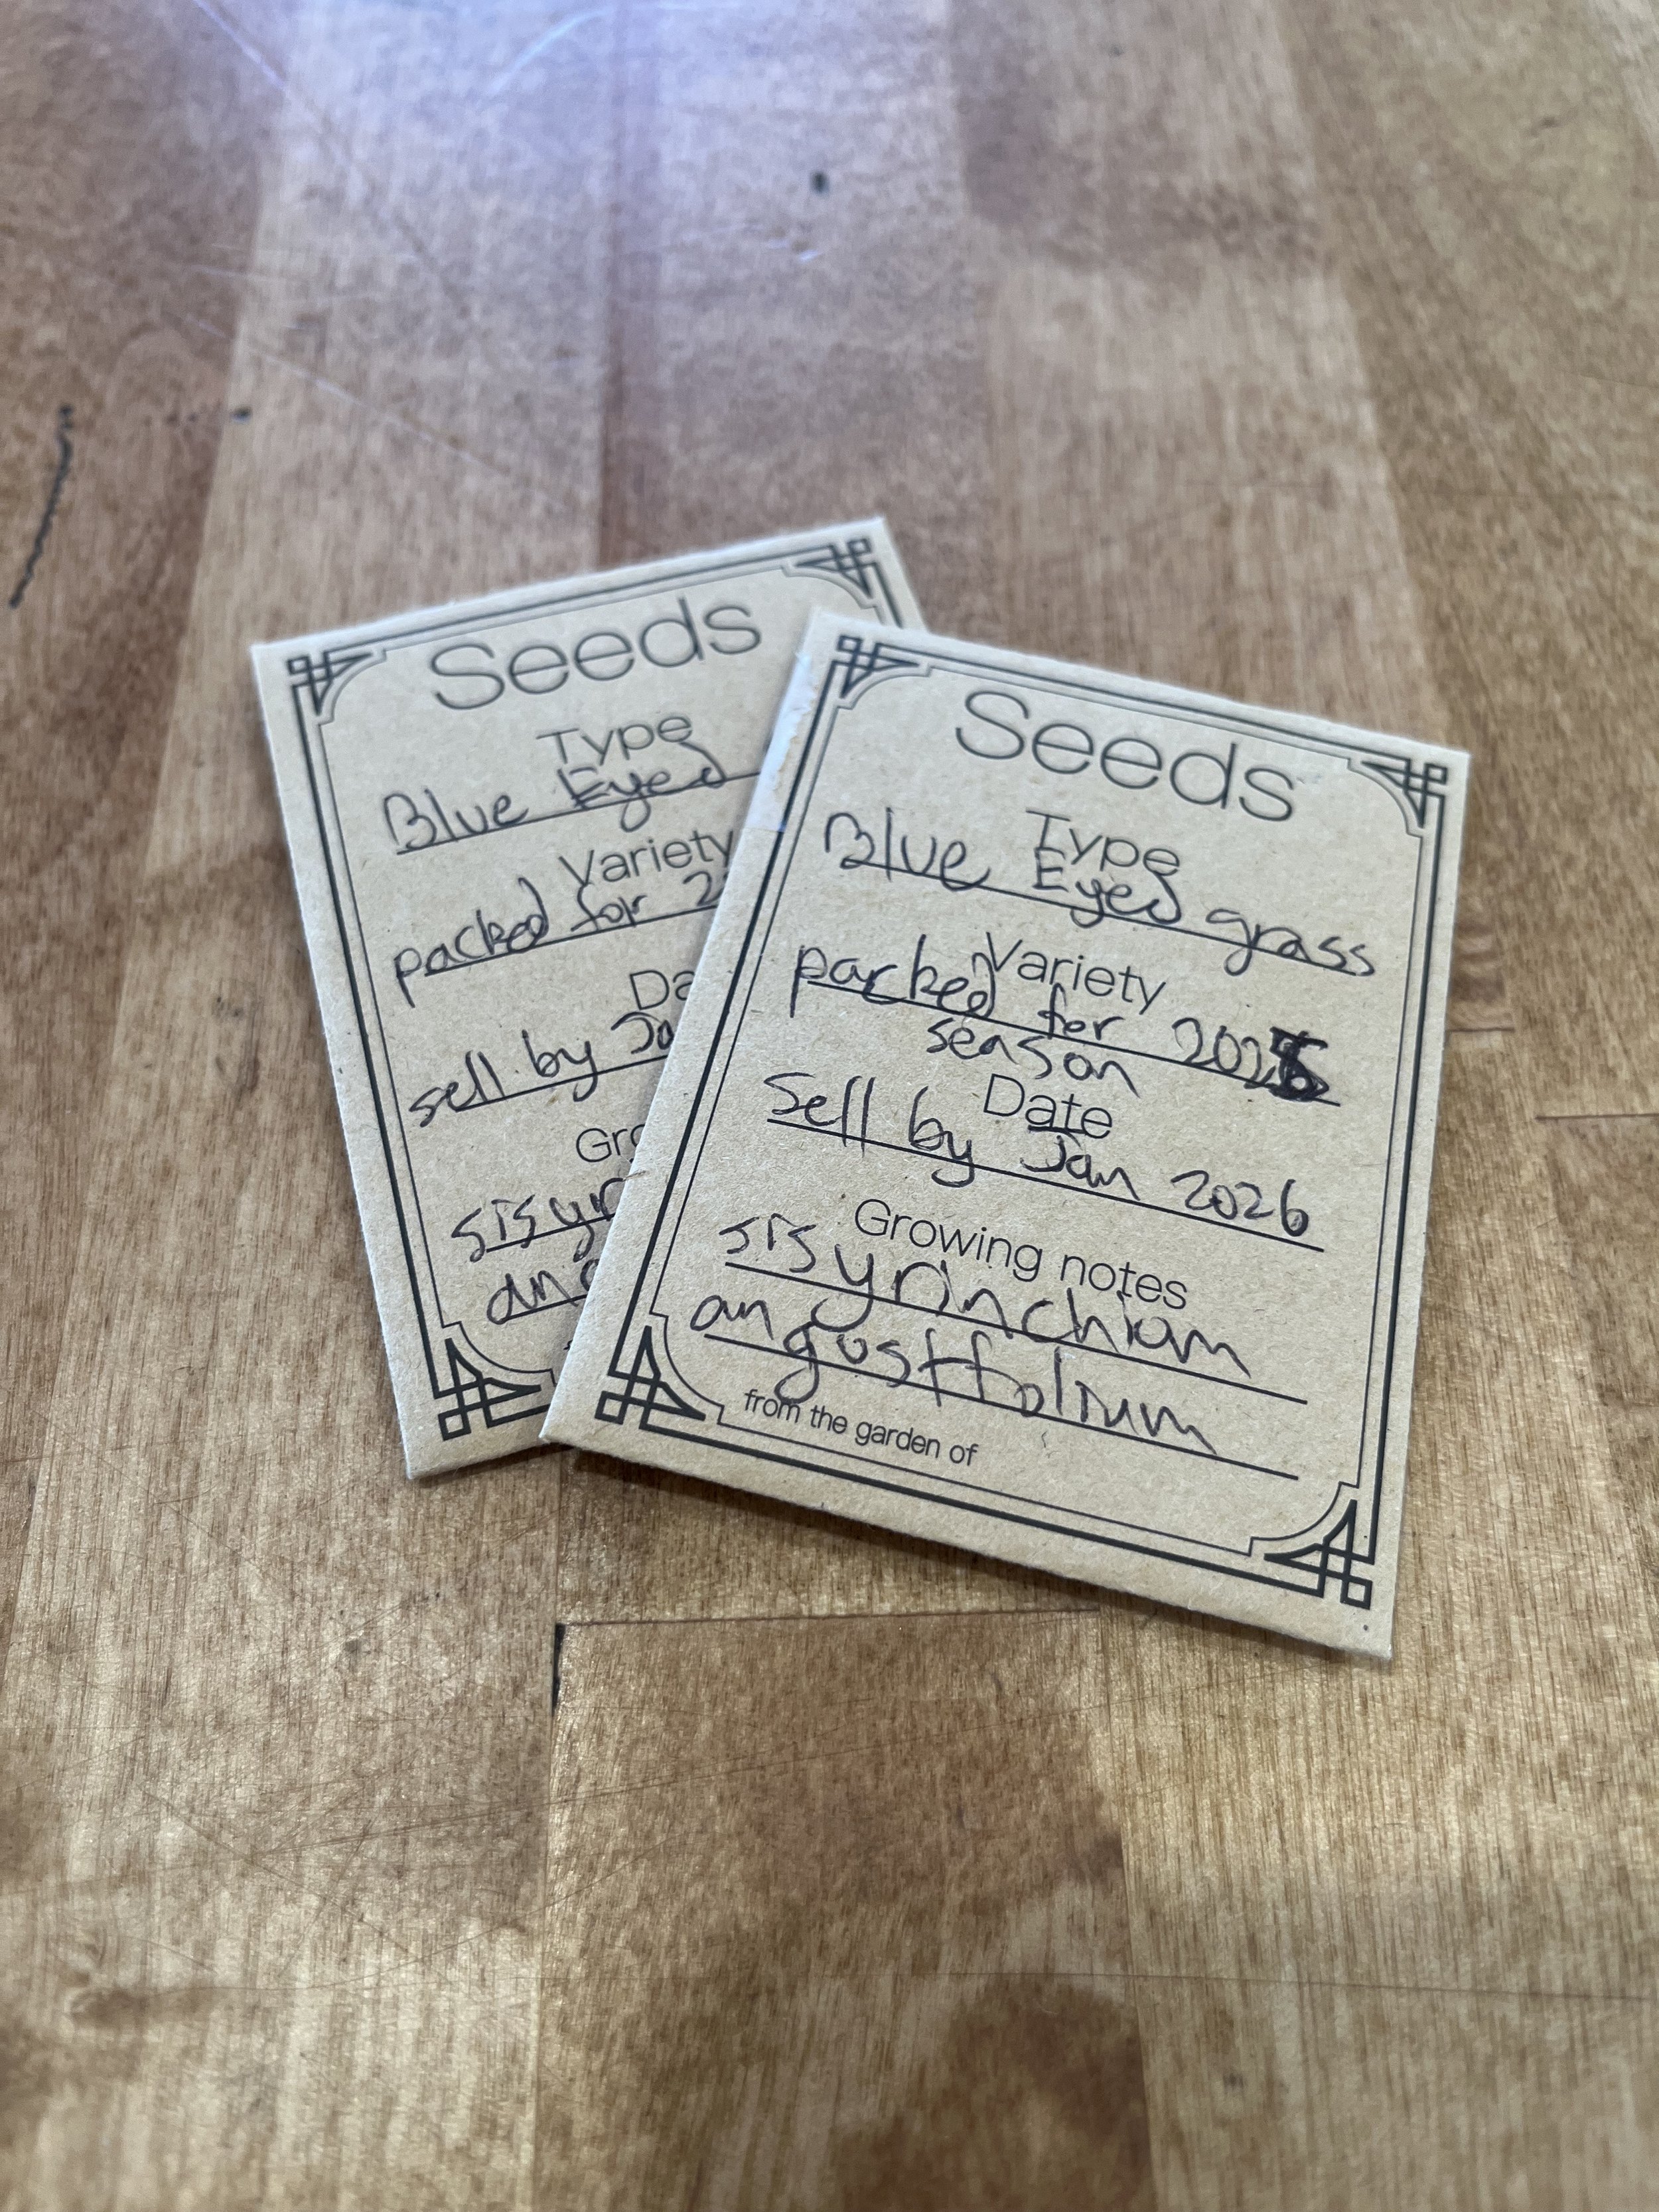 Seeds
Type
Blue Eyed
Variety
packed for 2
Da
sell by Ja
Gro
sisyr
ang
Seeds
Type
Blue Eyed grass
Variety
packed for 2025
season
Date
Sell by Jan 2026
Growing notes
sisyrinchium
angustfolium
from the garden of